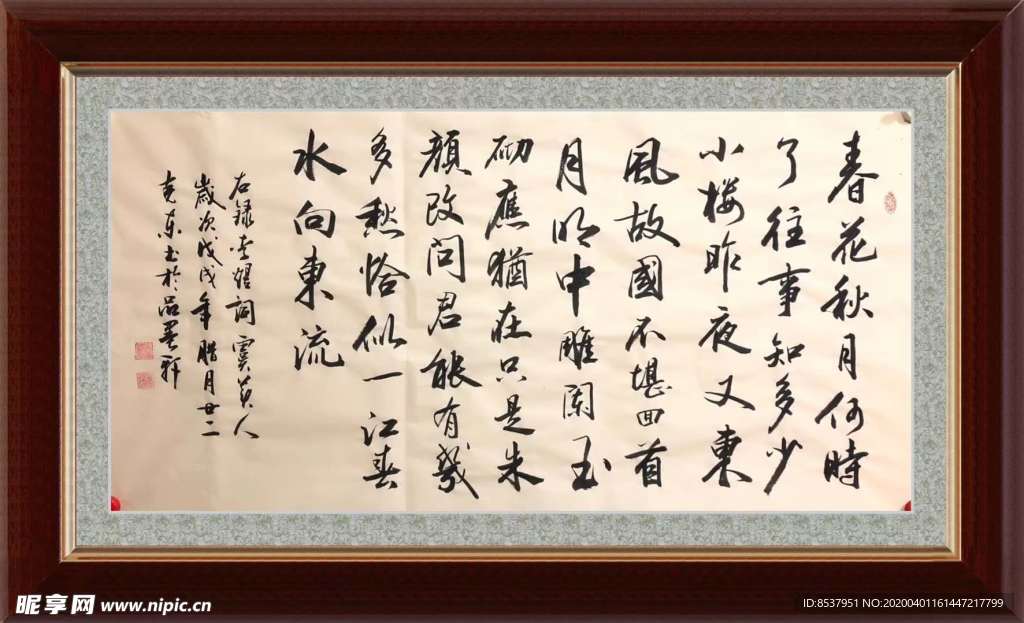 春花秋月何時
了往事知多少
小楼昨夜又東
風故國不堪回首
月明中雕闌玉
砌應猶在只是朱
顏改问君能有幾
多愁恰似一江春
水向東流
右録李煜詞虞美人
歲次戊戌年腊月廿二
克東书於品墨轩
昵享网 www.nipic.cn
ID:8537951 NO:20200401161447217799